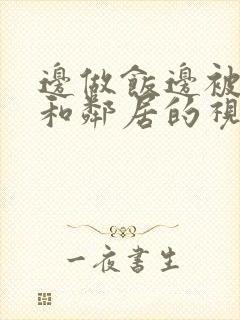 邊做飯邊被
和鄰居的視
一夜書生